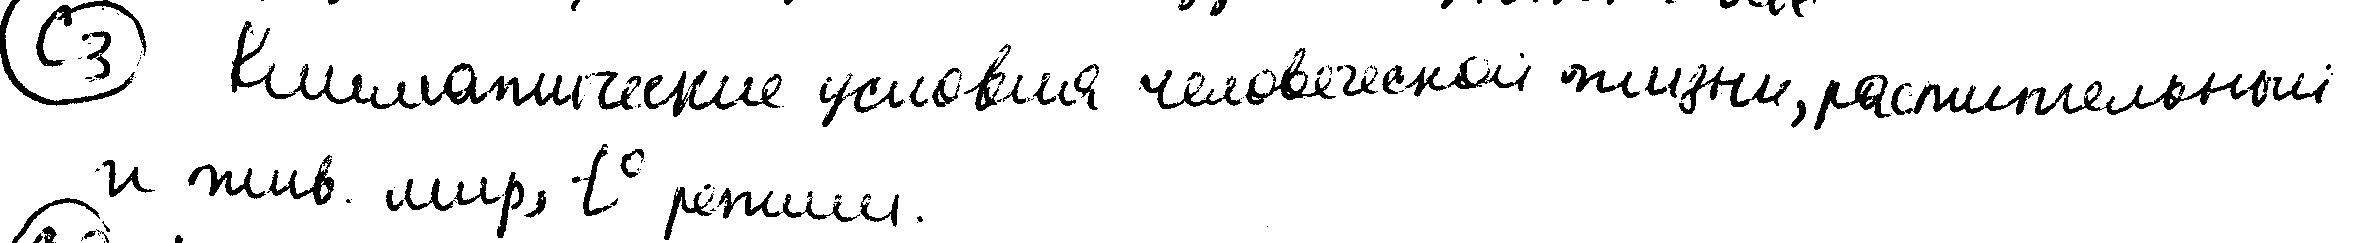 С3 Климатические условия человеческой жизни, растительный
и жив. мир, t° режим.